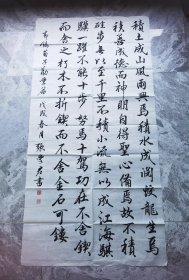 積土成山風雨興焉積水成淵蛟龍生焉
積善成德而神明自得聖心備焉故不積
跬步無以至千里不積小流無以成江海騏
驥一躍不能十步駑馬十駕功在不舍鍥
而舍之朽木不折鍥而不舍金石可鏤
荀子勸學篇 戊戌春月 張